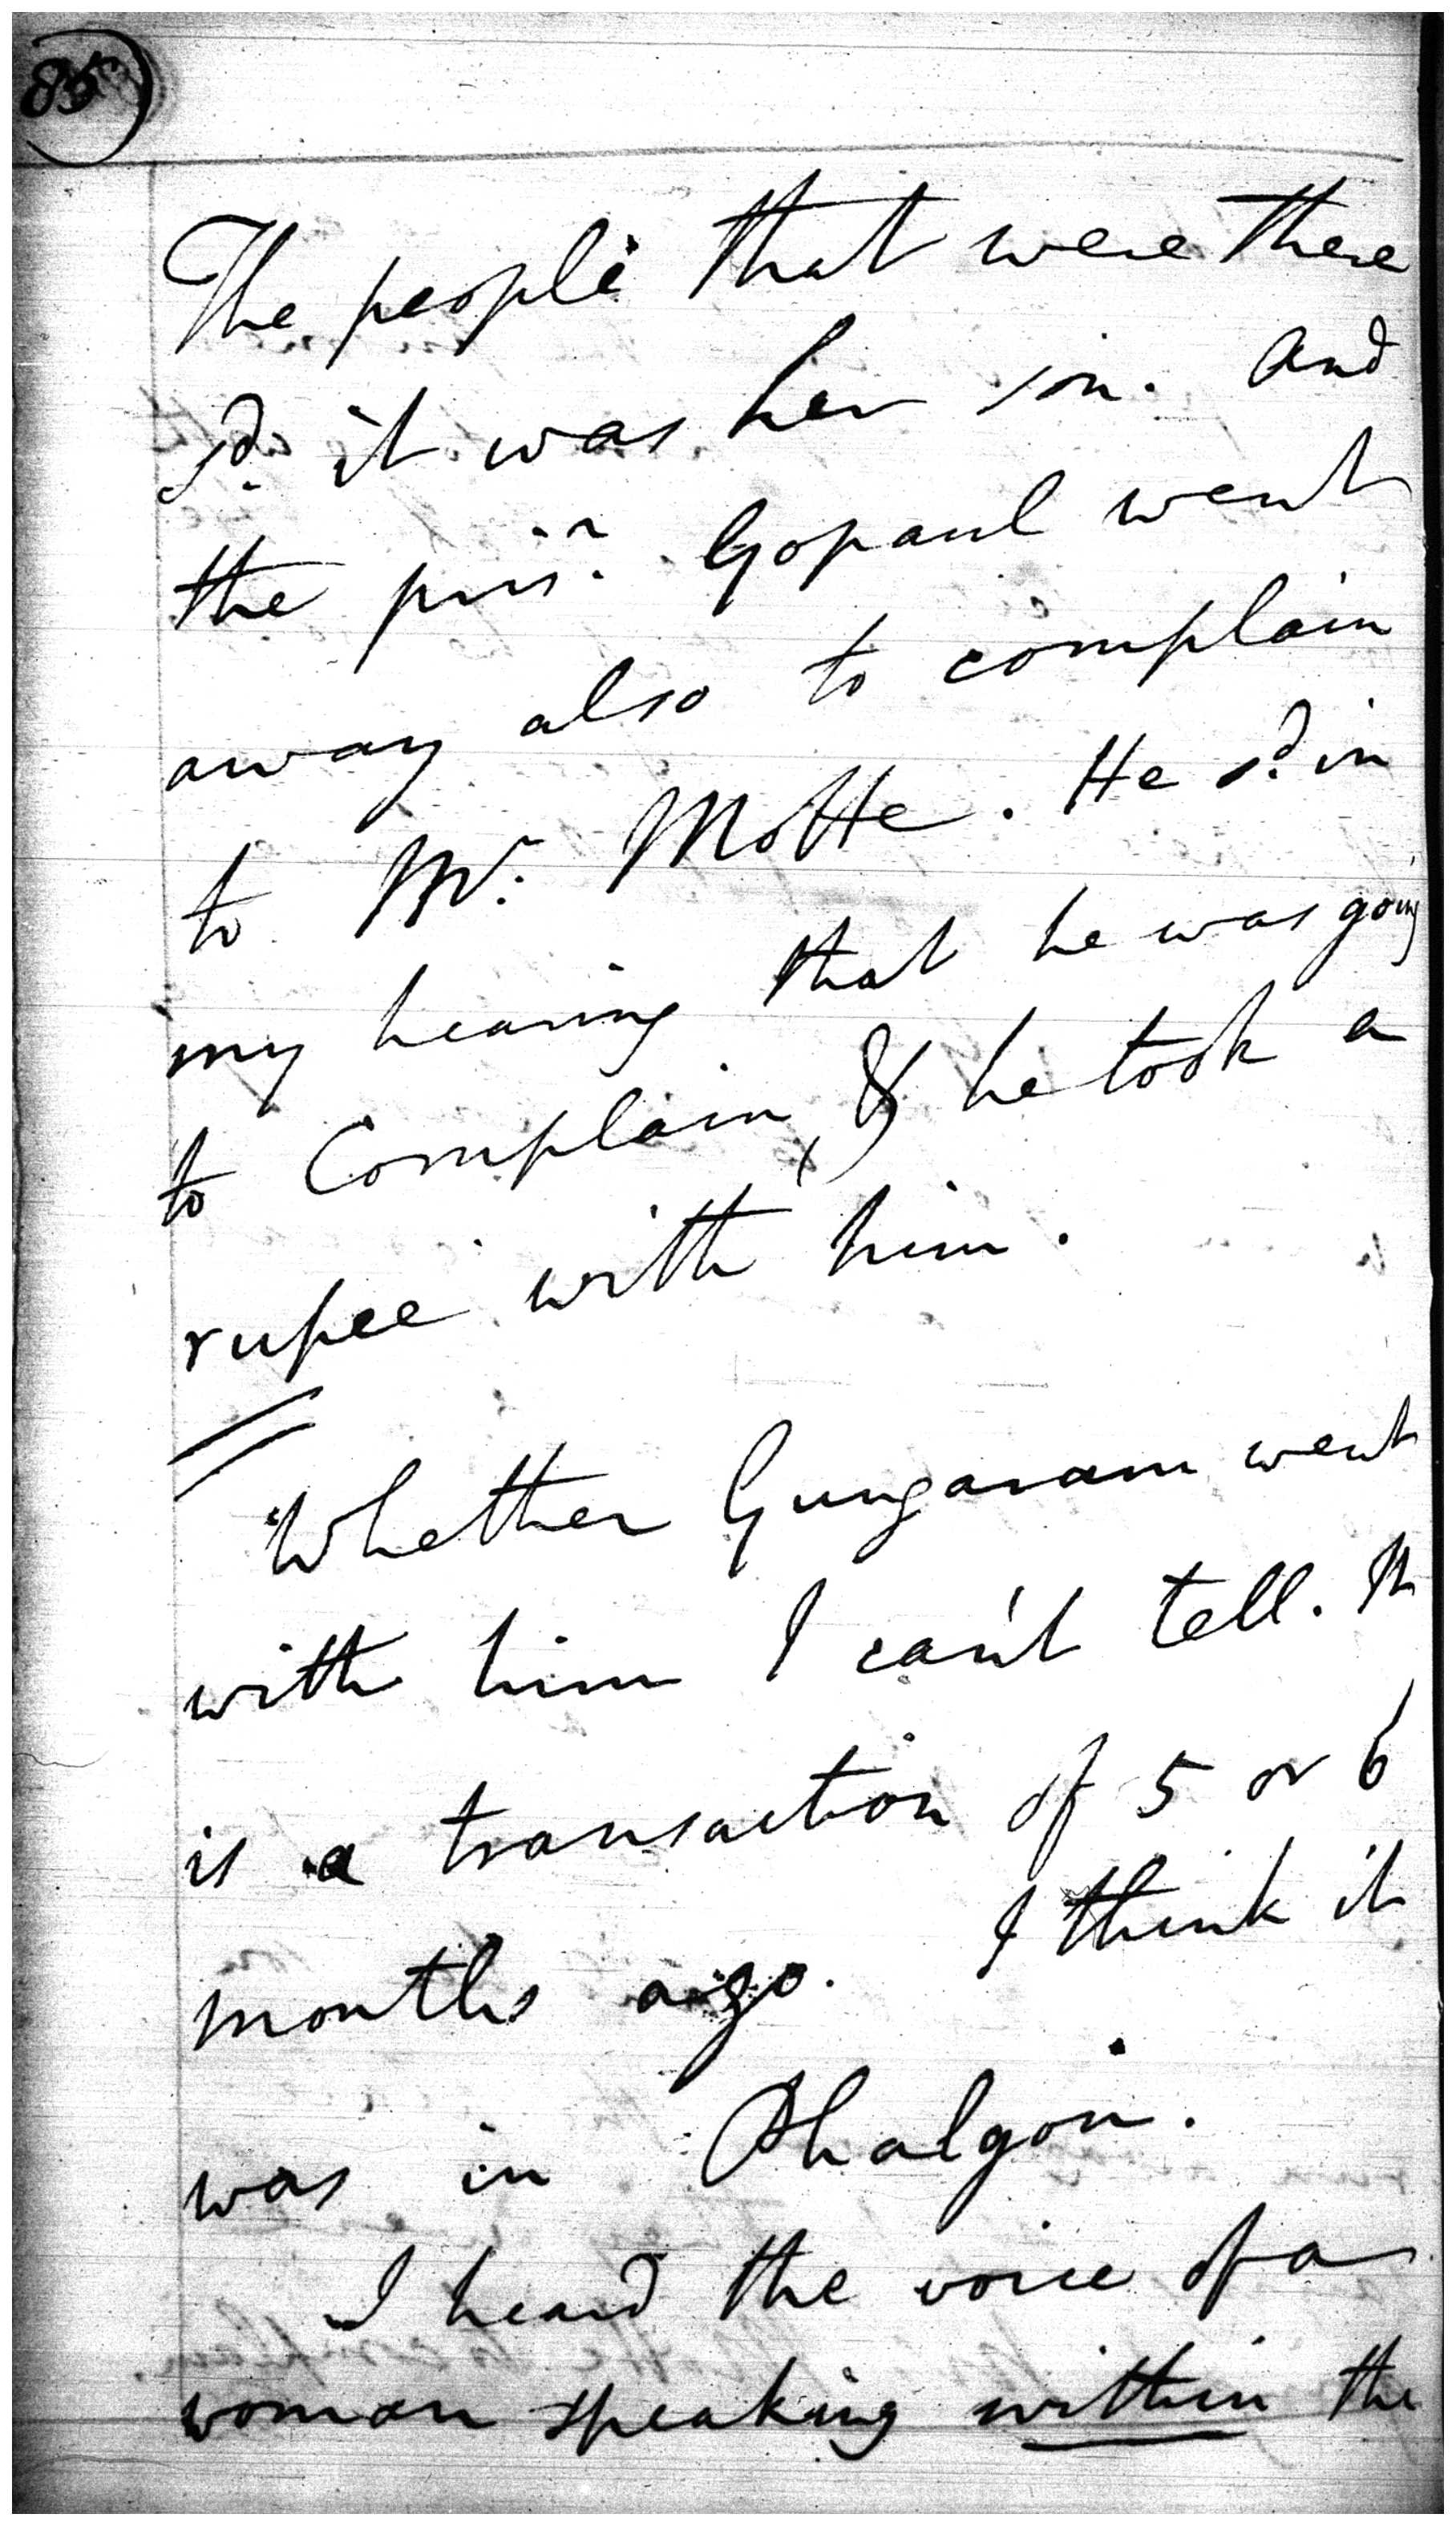 85
The people that were there
sd. it was her son. And
the prisr. Gopaul went
away also to complain
to Mr. Motte. He sd. in
my hearing that he was going
to Complain, & he took a
rupee with him.
Whether Gungaram went
with him I can't tell. It
is a transaction of 5 or 6
months ago. I think it
was in Phalgon.
I heard the voice of a
woman speaking within the